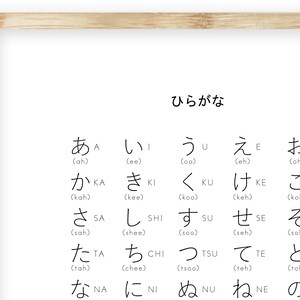 ひらがな
あ A い I う U え E お
(ah) (ee) (oo) (eh) (oh
か KA き KI く KU け KE こ
(kah) (kee) (koo) (keh) (ko
さ SA し SHI す SU せ SE そ
(sah) (shee) (soo) (seh) (so
た TA ち CHI つ TSU て TE と
(tah) (chee) (tsoo) (teh) (to
な NA に NI ぬ NU ね NE の